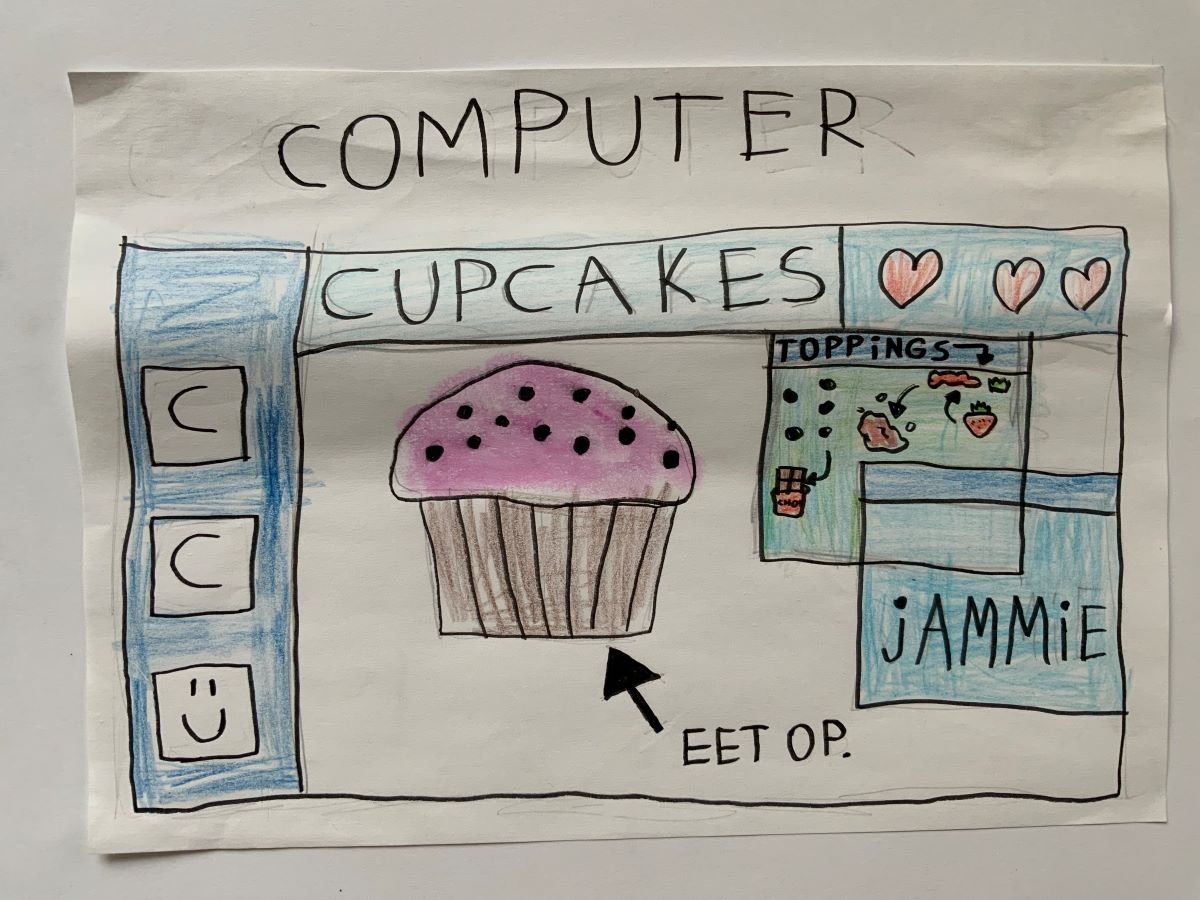 COMPUTER
CUPCAKES
TOPPiNGS
C
C
CHOC
jAMMiE
EET OP.